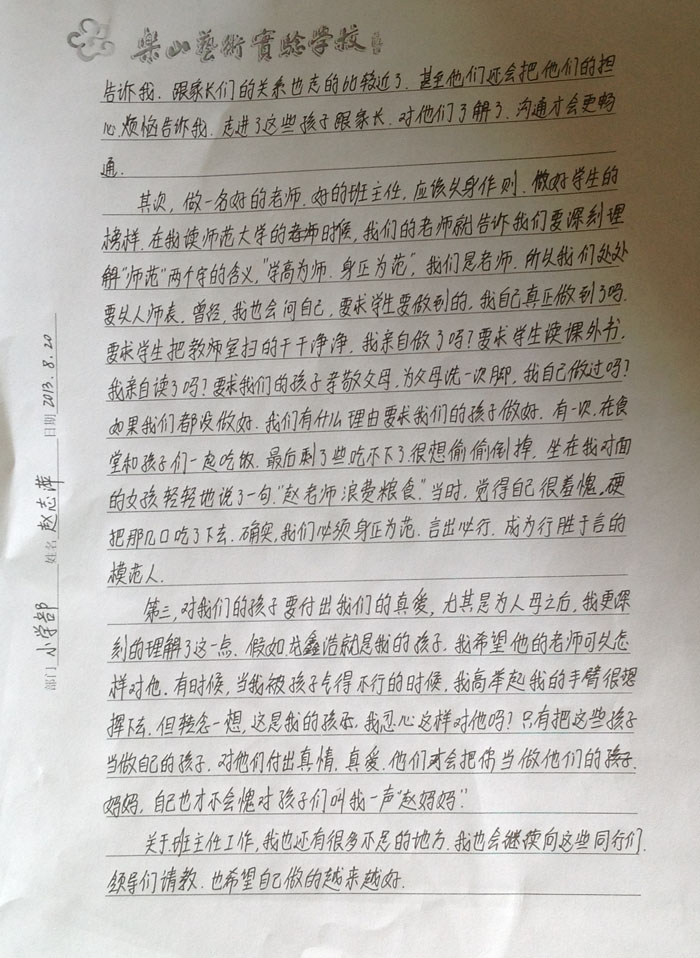 樂山藝術實驗學校
告诉我.跟家长们的关系也走的比较近了.甚至他们还会把他们的担
心.烦恼告诉我.走进了这些孩子跟家长.对他们了解了.沟通才会更畅
通.
其次,做一名好的老师.好的班主任,应该以身作则.做好学生的
榜样.在我读师范大学的时候,我们的老师就告诉我们要深刻理
解“师范”两个字的含义,“学高为师.身正为范”,我们是老师.所以我们处处
要以人师表.曾经,我也会问自己,要求学生要做到的,我自己真正做到了吗.
要求学生把教师室扫的干干净净,我亲自做了吗?要求学生读课外书,
我亲自读了吗?要求我们的孩子孝敬父母,为父母洗一次脚,我自己做过吗?
如果我们都没做好.我们有什么理由要求我们的孩子做好.有一次,在食
堂和孩子们一起吃饭.最后剩了些吃不下了很想偷偷倒掉,坐在我对面
的女孩轻轻地说了一句:“赵老师浪费粮食.”当时,觉得自己很羞愧.硬
把那几口吃了下去.确实,我们必须身正为范.言出必行.成为行胜于言的
模范人.
第三,对我们的孩子要付出我们的真爱,尤其是为人母之后,我更深
刻的理解了这一点.假如龙鑫浩就是我的孩子.我希望他的老师可以怎
样对他.有时候,当我被孩子气得不行的时候,我高举起我的手臂很想
挥下去.但转念一想,这是我的孩子,我忍心这样对他吗?只有把这些孩子
当做自己的孩子.对他们付出真情.真爱.他们才会把你当做他们的
妈妈,自己也才不会愧对孩子们叫我一声“赵妈妈”.
关于班主任工作,我也还有很多不足的地方.我也会继续向这些同行们.
领导们请教.也希望自己做的越来越好.
部门 小学部 姓名 赵志萍 日期 2013.8.20